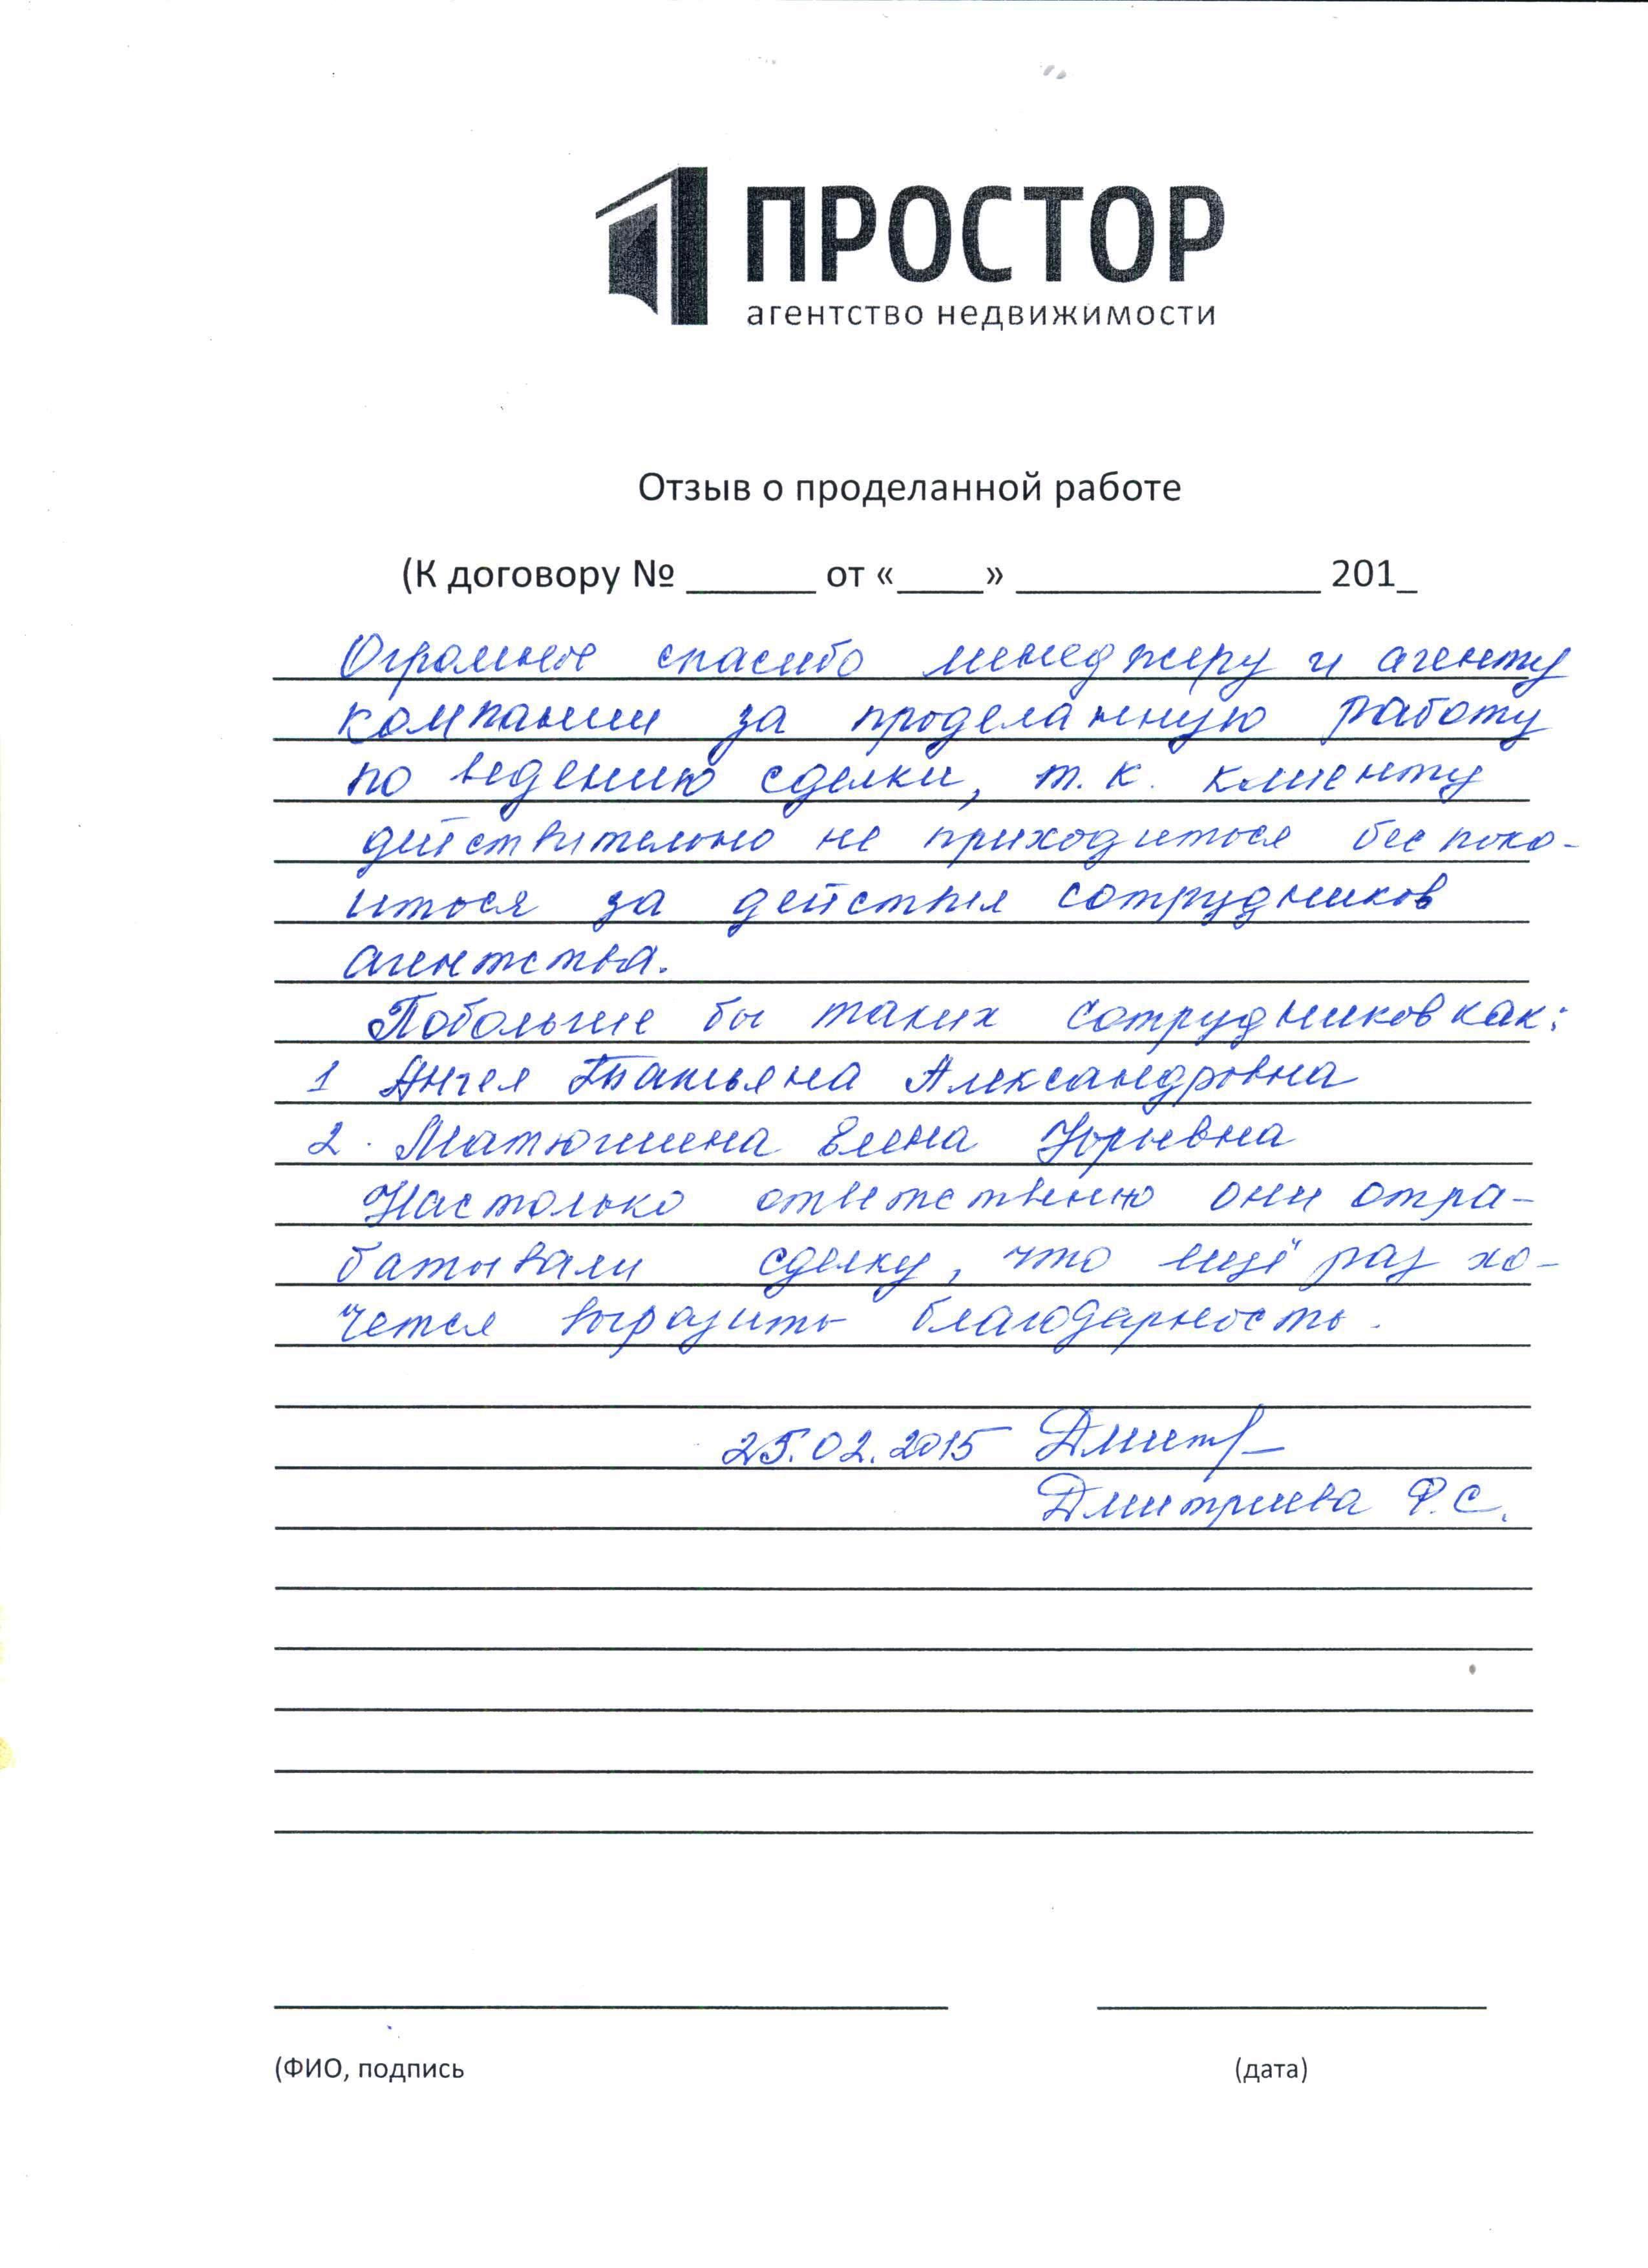 ПРОСТОР
агентство недвижимости
Отзыв о проделанной работе
(К договору № ______ от «____» ______________ 201_
Огромное спасибо менеджеру и агенту
компании за проделанную работу
по ведению сделки, т.к. клиенту
действительно не приходиться беспоко-
иться за действия сотрудников
агентства.
Побольше бы таких сотрудников как:
1 Ангел Татьяна Александровна
2. Матюшина Елена Юрьевна
Настолько ответственно они отра-
батывали сделку, что ещё раз хо-
чется выразить благодарность.
25.02.2015 Дмитр
Дмитриева Ф.С.
(ФИО, подпись
(дата)